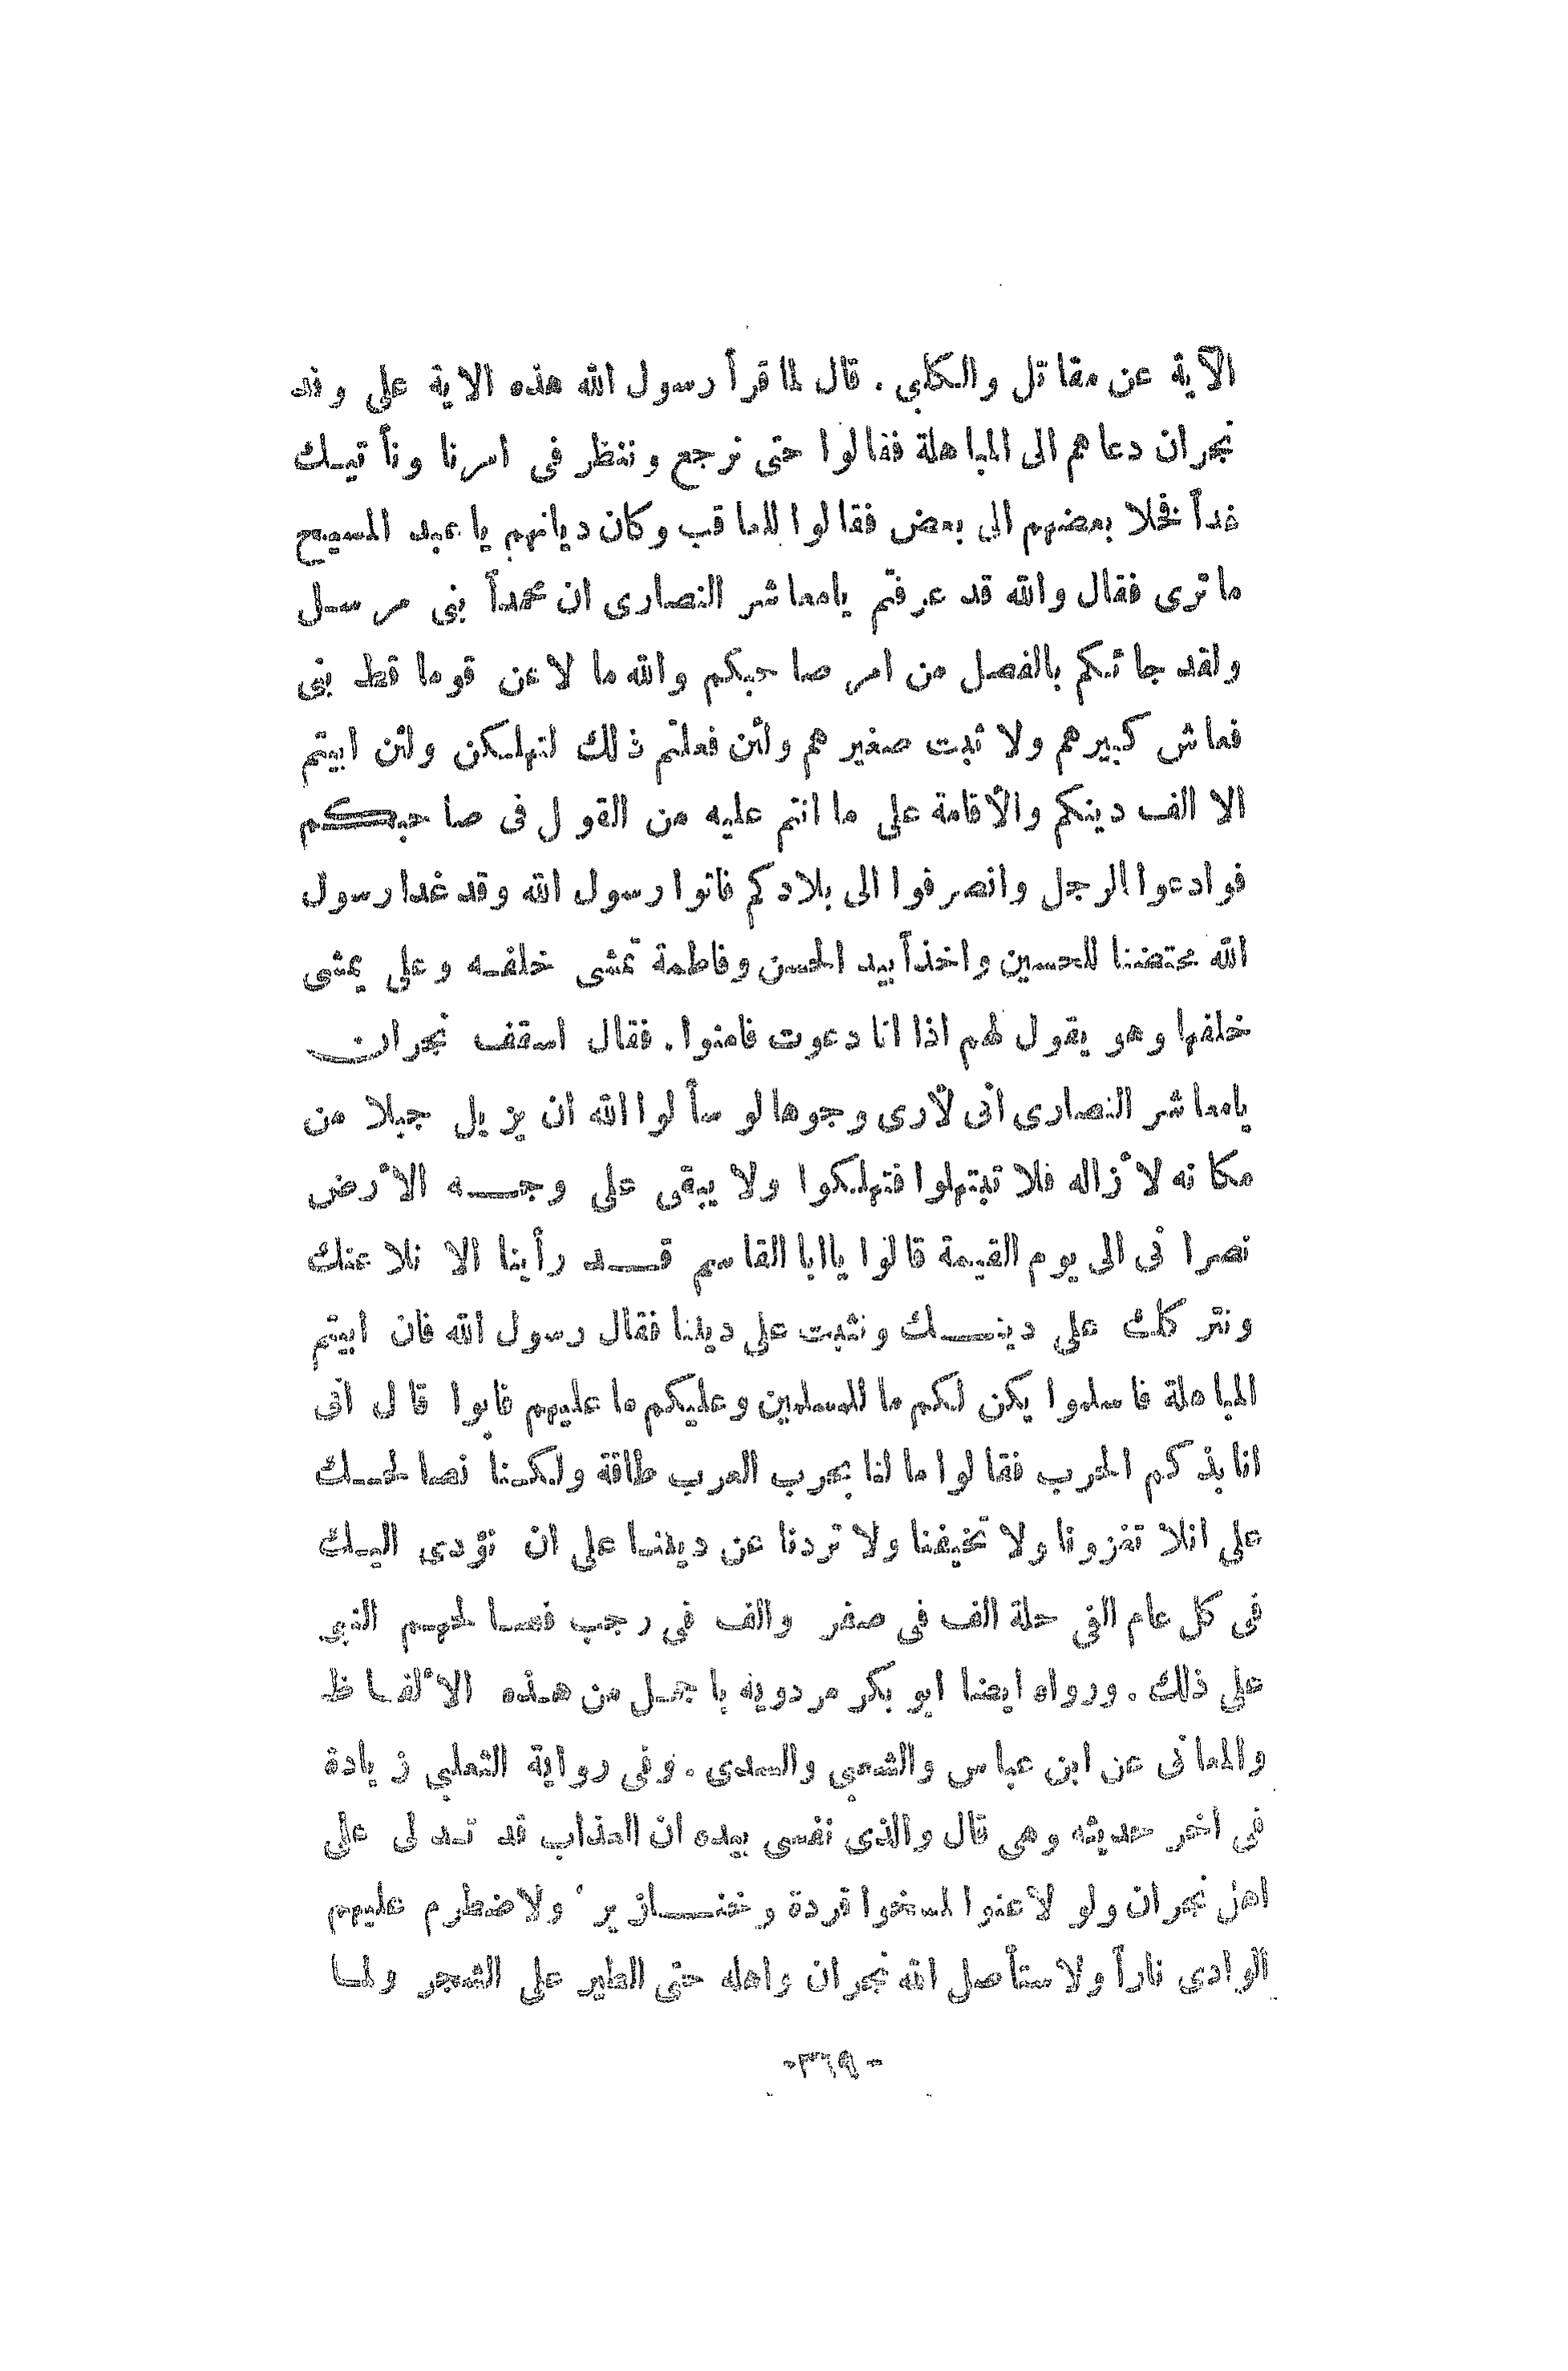 الآية عن مقاتل والكلبي . قال لما قرأ رسول الله هذه الاية على وفد
نجران دعاهم الى المباهلة فقالوا حتى نرجع وننظر فى امرنا ونأتيك
غداً فخلا بعضهم الى بعض فقالوا للعاقب وكان ديانهم يا عبد المسيح
ما ترى فقال والله قد عرفتم يامعاشر النصارى ان محمداً نبى مرسل
ولقد جائكم بالفصل من امر صاحبكم والله ما لاعن قوما قط نبى
فعاش كبيرهم ولا نبت صغيرهم ولئن فعلتم ذلك لتهلكن ولئن ابيتم
الا الف دينكم والأقامة على ما انتم عليه من القول فى صاحبكم
فوادعوا الرجل وانصرفوا الى بلادكم فاتوا رسول الله وقد غدا رسول
الله محتضنا للحسين واخذاً بيد الحسن وفاطمة تمشى خلفه وعلى يمشى
خلفها وهو يقول لهم اذا انا دعوت فامنوا . فقال اسقف نجران
يامعاشر النصارى انى لأرى وجوها لو سألوا الله ان يزيل جبلا من
مكانه لأزاله فلا تبتهلوا فتهلكوا ولا يبقى على وجه الأرض
نصرانى الى يوم القيمة قالوا ياابا القاسم قد رأينا الا نلاعنك
ونتركك على دينك ونثبت على ديننا فقال رسول الله فان ابيتم
المباهلة فاسلموا يكن لكم ما للمسلمين وعليكم ما عليهم فابوا قال انى
انابذكم الحرب فقالوا ما لنا بحرب العرب طاقة ولكنا نصالحك
على انلا تغزونا ولا تخيفنا ولا تردنا عن ديننا على ان نؤدى اليك
فى كل عام الفى حلة الف فى صفر والف فى رجب فصالحهم النبى
على ذلك . ورواه ايضا ابو بكر مردويه باجمل من هذه الألفاظ
والمعانى عن ابن عباس والشعبي والسدى . وفى رواية الثعلبي زيادة
فى اخر حديثه وهى قال والذى نفسى بيده ان العذاب قد تدلى على
اهل نجران ولو لاعنوا لمسخوا قردة وخنازير ولاضطرم عليهم
الوادى ناراً ولاستأصل الله نجران واهله حتى الطير على الشجر ولما
-٣٦٩-